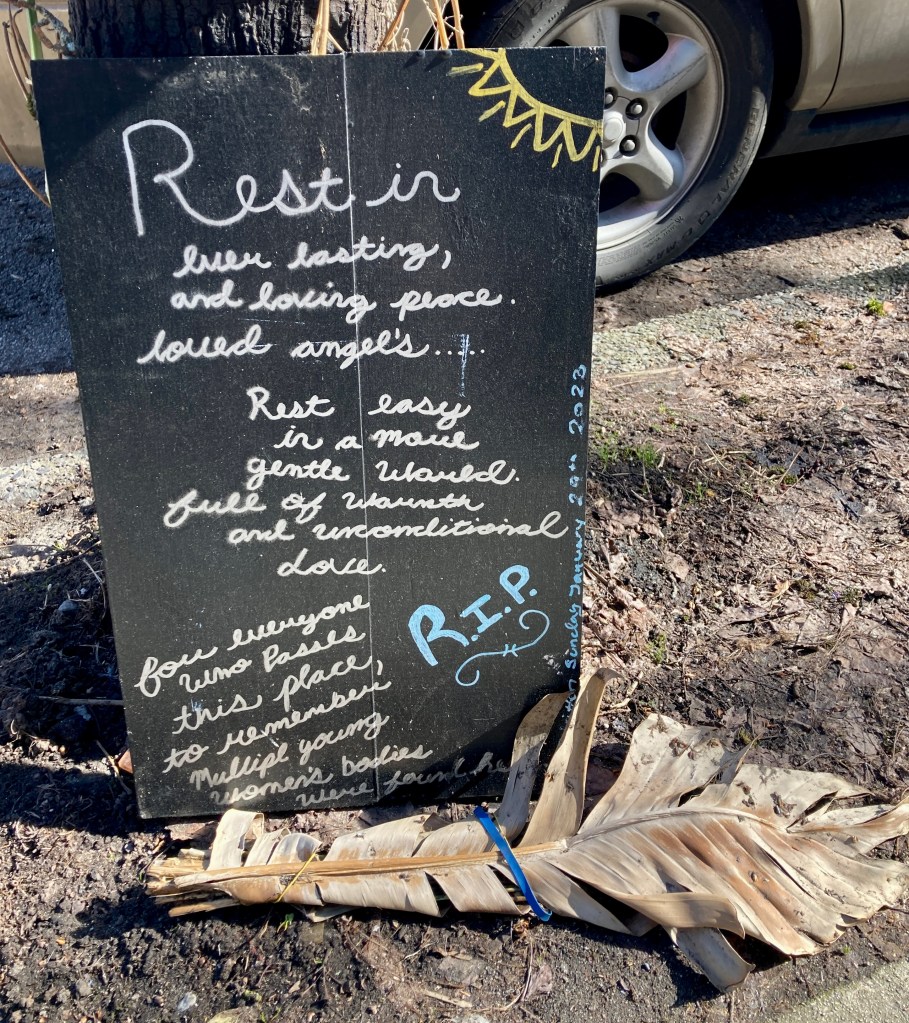 Rest in
ever lasting,
and loving peace.
loved angel's.....
Rest easy
in a more
gentle World.
full of warmth
and unconditional
love.
R.I.P.
for everyone
who Passes
this place,
to remember,
Multipl young
Women's bodies
were found
Sunday January 29th 2023
GENERAL